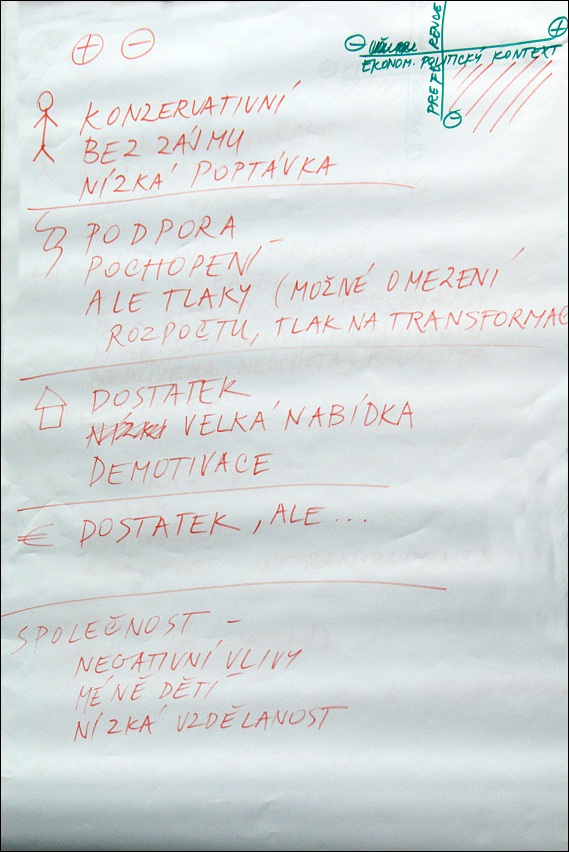 ⊕ ⊖
PREFERENCE
EKONOM. POLITICKÝ KONTEXT
KONZERVATIVNÍ
BEZ ZÁJMU
NÍZKÁ POPTÁVKA
PODPORA
POCHOPENÍ
ALE TLAKY (MOŽNÉ OMEZENÍ
ROZPOČTU, TLAK NA TRANSFORMAC
DOSTATEK
VELKÁ NABÍDKA
DEMOTIVACE
€ DOSTATEK, ALE...
SPOLEČNOST -
NEGATIVNÍ VLIVY
MÉNĚ DĚTÍ
NÍZKÁ VZDĚLANOST